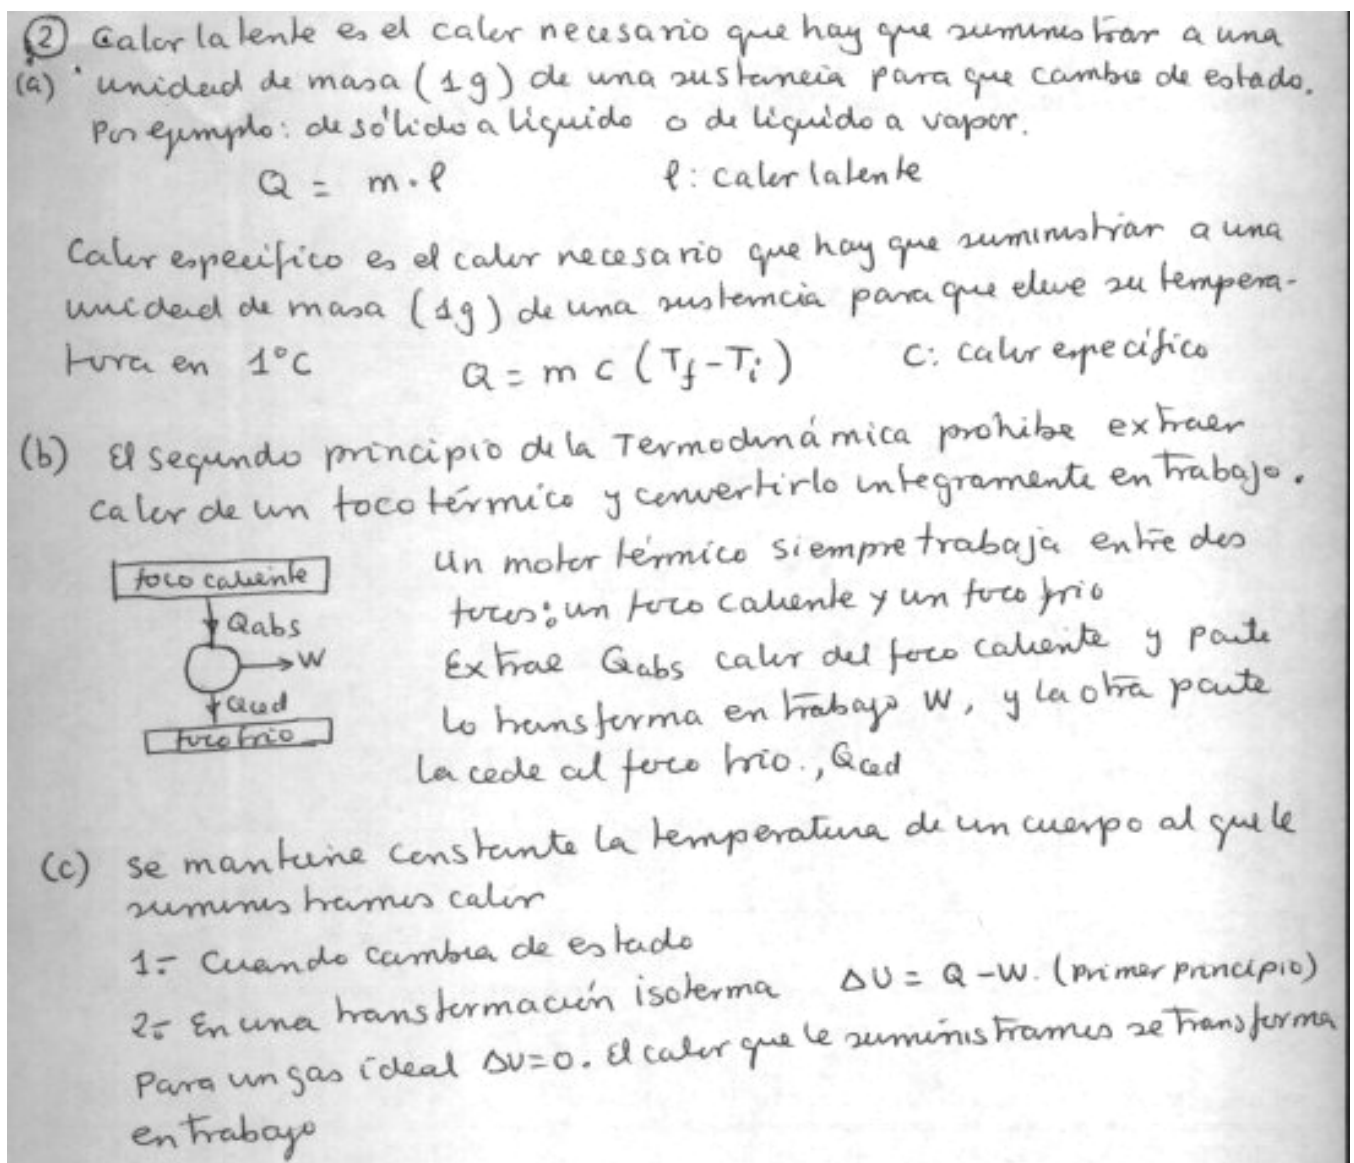 ② Calor latente es el calor necesario que hay que suministrar a una
(a) unidad de masa (1g) de una sustancia para que cambie de estado.
Por ejemplo: de sólido a líquido o de líquido a vapor.
Q = m · l    l: calor latente
Calor específico es el calor necesario que hay que suministrar a una
unidad de masa (1g) de una sustancia para que eleve su tempera-
tura en 1°C    Q = m c (Tf - Ti)    C: calor específico
(b) El segundo principio de la Termodinámica prohibe extraer
calor de un foco térmico y convertirlo integramente en trabajo.
Un motor térmico siempre trabaja entre dos
focos: un foco caliente y un foco frio
Extrae Qabs calor del foco caliente y parte
lo transforma en trabajo W, y la otra parte
la cede al foco frio., Qced
foco caliente
Qabs
W
Qced
foco frio
(c) se mantiene constante la temperatura de un cuerpo al que le
suministramos calor
1.- Cuando cambia de estado
2.- En una transformación isoterma    ΔU = Q - W. (primer principio)
Para un gas ideal ΔU=0. El calor que le suministramos se transforma
en trabajo